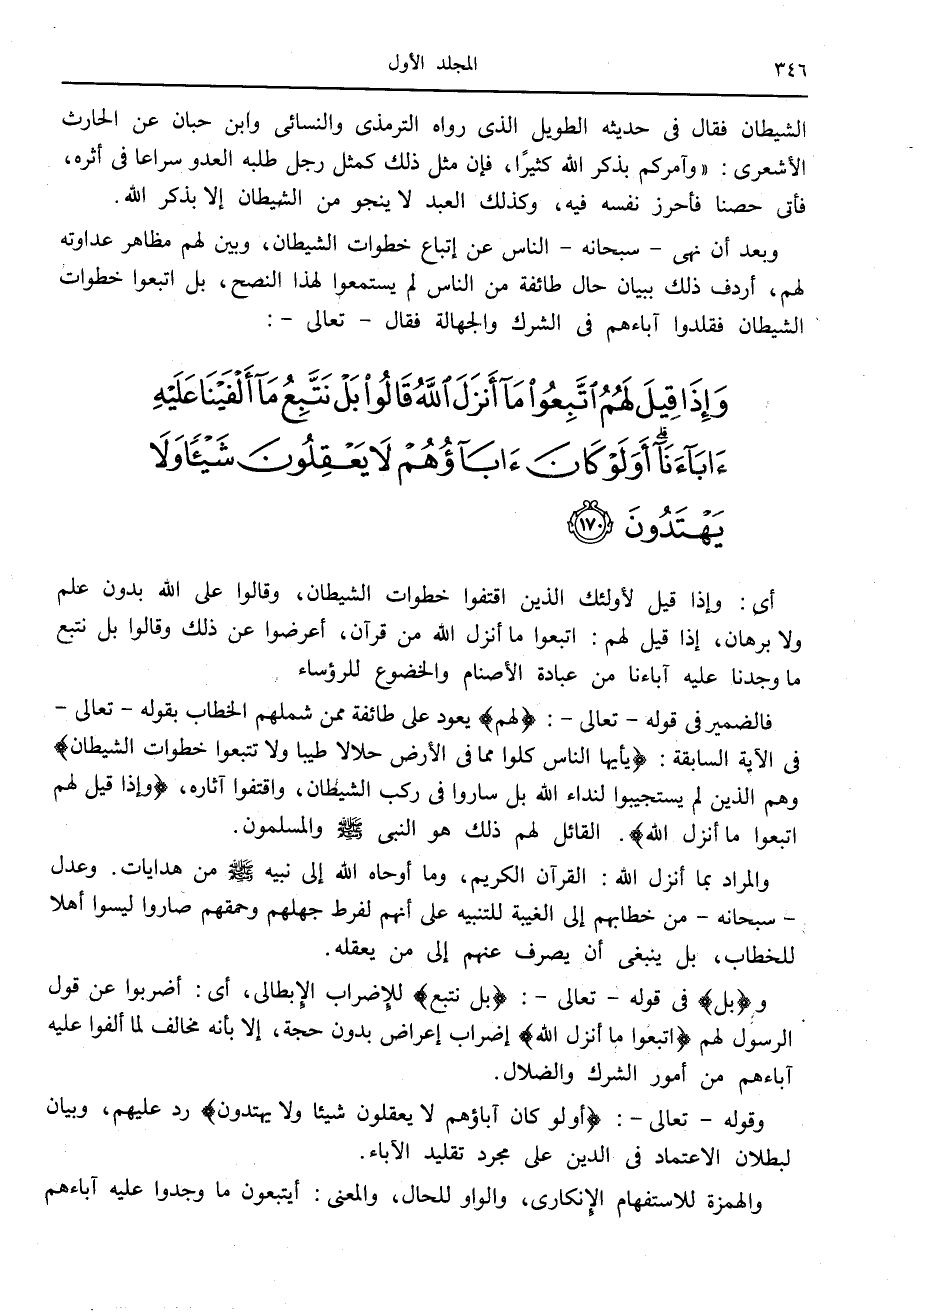 ٣٤٦
المجلد الأول
الشيطان فقال فى حديثه الطويل الذى رواه الترمذى والنسائى وابن حبان عن الحارث
الأشعرى : «وآمركم بذكر الله كثيرًا، فإن مثل ذلك كمثل رجل طلبه العدو سراعا فى أثره،
فأتى حصنا فأحرز نفسه فيه، وكذلك العبد لا ينجو من الشيطان إلا بذكر الله.
وبعد أن نهى - سبحانه - الناس عن إتباع خطوات الشيطان، وبين لهم مظاهر عداوته
لهم، أردف ذلك ببيان حال طائفة من الناس لم يستمعوا لهذا النصح، بل اتبعوا خطوات
الشيطان فقلدوا آباءهم فى الشرك والجهالة فقال - تعالى - :
وَإِذَا قِيلَ لَهُمُ ٱتَّبِعُوا۟ مَآ أَنزَلَ ٱللَّهُ قَالُوا۟ بَلْ نَتَّبِعُ مَآ أَلْفَيْنَا عَلَيْهِ
ءَابَآءَنَآ ۗ أَوَلَوْ كَانَ ءَابَآؤُهُمْ لَا يَعْقِلُونَ شَيْـًٔا وَلَا
يَهْتَدُونَ ١٧٠
أى : وإذا قيل لأولئك الذين اقتفوا خطوات الشيطان، وقالوا على الله بدون علم
ولا برهان، إذا قيل لهم : اتبعوا ما أنزل الله من قرآن، أعرضوا عن ذلك وقالوا بل نتبع
ما وجدنا عليه آباءنا من عبادة الأصنام والخضوع للرؤساء
فالضمير فى قوله - تعالى - : ﴿لهم﴾ يعود على طائفة ممن شملهم الخطاب بقوله - تعالى -
فى الآية السابقة : ﴿يأيها الناس كلوا مما فى الأرض حلالا طيبا ولا تتبعوا خطوات الشيطان﴾
وهم الذين لم يستجيبوا لنداء الله بل ساروا فى ركب الشيطان، واقتفوا آثاره، ﴿وإذا قيل لهم
اتبعوا ما أنزل الله﴾. القائل لهم ذلك هو النبى ﷺ والمسلمون.
والمراد بما أنزل الله : القرآن الكريم، وما أوحاه الله إلى نبيه ﷺ من هدايات. وعدل
- سبحانه - من خطابهم إلى الغيبة للتنبيه على أنهم لفرط جهلهم وحمقهم صاروا ليسوا أهلا
للخطاب، بل ينبغى أن يصرف عنهم إلى من يعقله.
و﴿بل﴾ فى قوله - تعالى - : ﴿بل نتبع﴾ للإضراب الإبطالى، أى : أضربوا عن قول
الرسول لهم ﴿اتبعوا ما أنزل الله﴾ إضراب إعراض بدون حجة، إلا بأنه مخالف لما ألفوا عليه
آباءهم من أمور الشرك والضلال.
وقوله - تعالى - : ﴿أولو كان آباؤهم لا يعقلون شيئا ولا يهتدون﴾ رد عليهم، وبيان
لبطلان الاعتماد فى الدين على مجرد تقليد الآباء.
والهمزة للاستفهام الإنكارى، والواو للحال، والمعنى : أيتبعون ما وجدوا عليه آباءهم